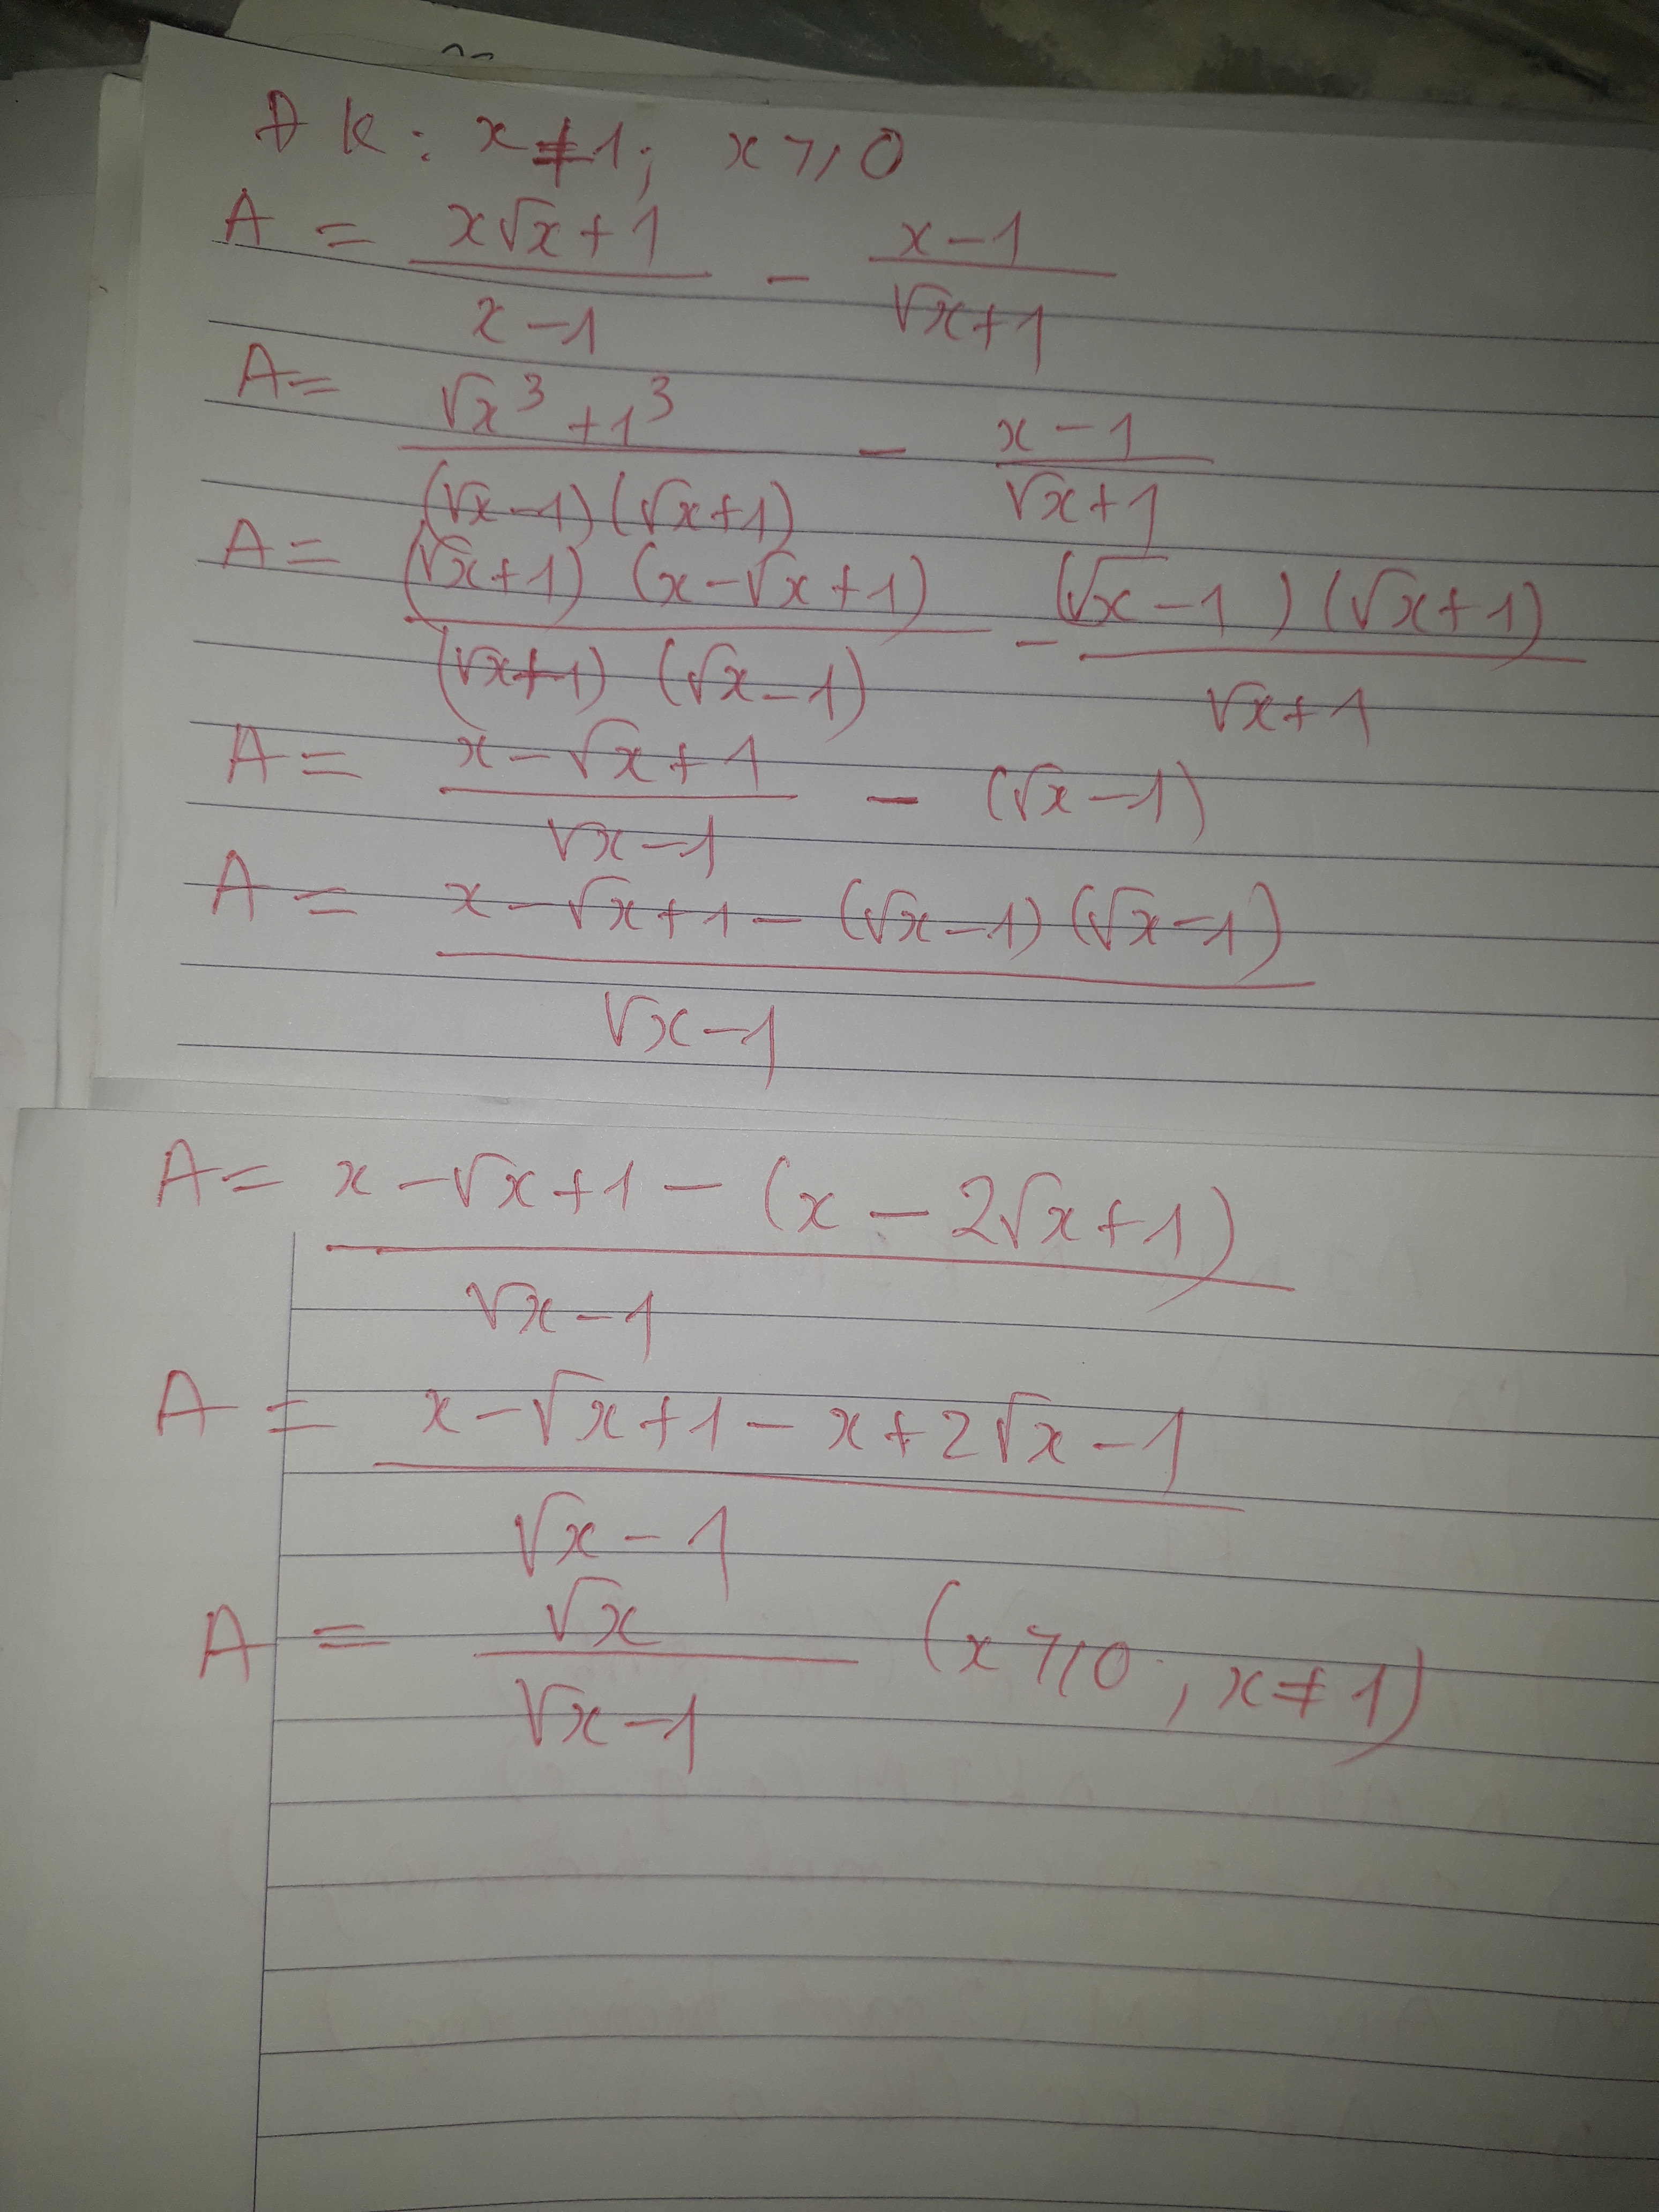 ĐK: x ≠ 1; x ≥ 0
A = (x√x + 1)/(x - 1) - (x - 1)/(√x + 1)
A = (√x³ + 1³)/((√x - 1)(√x + 1)) - (x - 1)/(√x + 1)
A = ((√x + 1)(x - √x + 1))/((√x + 1)(√x - 1)) - ((√x - 1)(√x + 1))/(√x + 1)
A = (x - √x + 1)/(√x - 1) - (√x - 1)
A = (x - √x + 1 - (√x - 1)(√x - 1))/(√x - 1)
A = (x - √x + 1 - (x - 2√x + 1))/(√x - 1)
A = (x - √x + 1 - x + 2√x - 1)/(√x - 1)
A = √x/(√x - 1) (x ≥ 0; x ≠ 1)